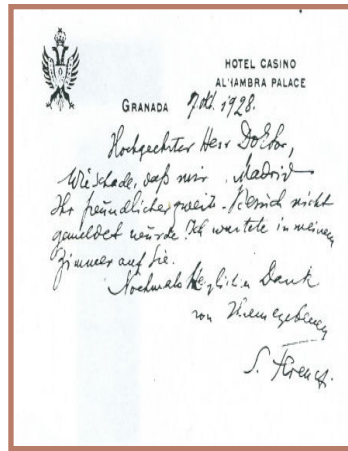 HOTEL CASINO
ALHAMBRA PALACE
GRANADA 7 Okt. 1928.
Hochgeehrter Herr Doktor,
Wie schade, daß mir Madrid
Ihr freundlicher zweite Besuch nicht
gemeldet wurde. Ich wartete in meinem
Zimmer auf Sie.
Nochmals herzlichen Dank
von Ihrem ergebenen
S. Ferenczi.